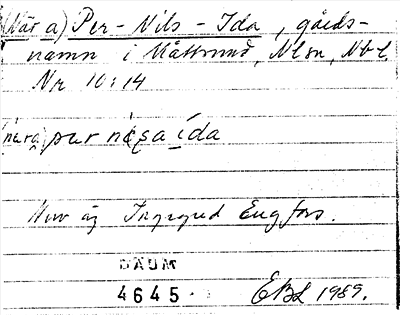 (När a) Per-Nils-Ida, gårds-
namn i Måttsund, Nlm, Nbt.
Nr 10:14
(nära) pær nisa ida
Nuv äg Ingegred Engfors.
DAUM
4645. EBL 1989.